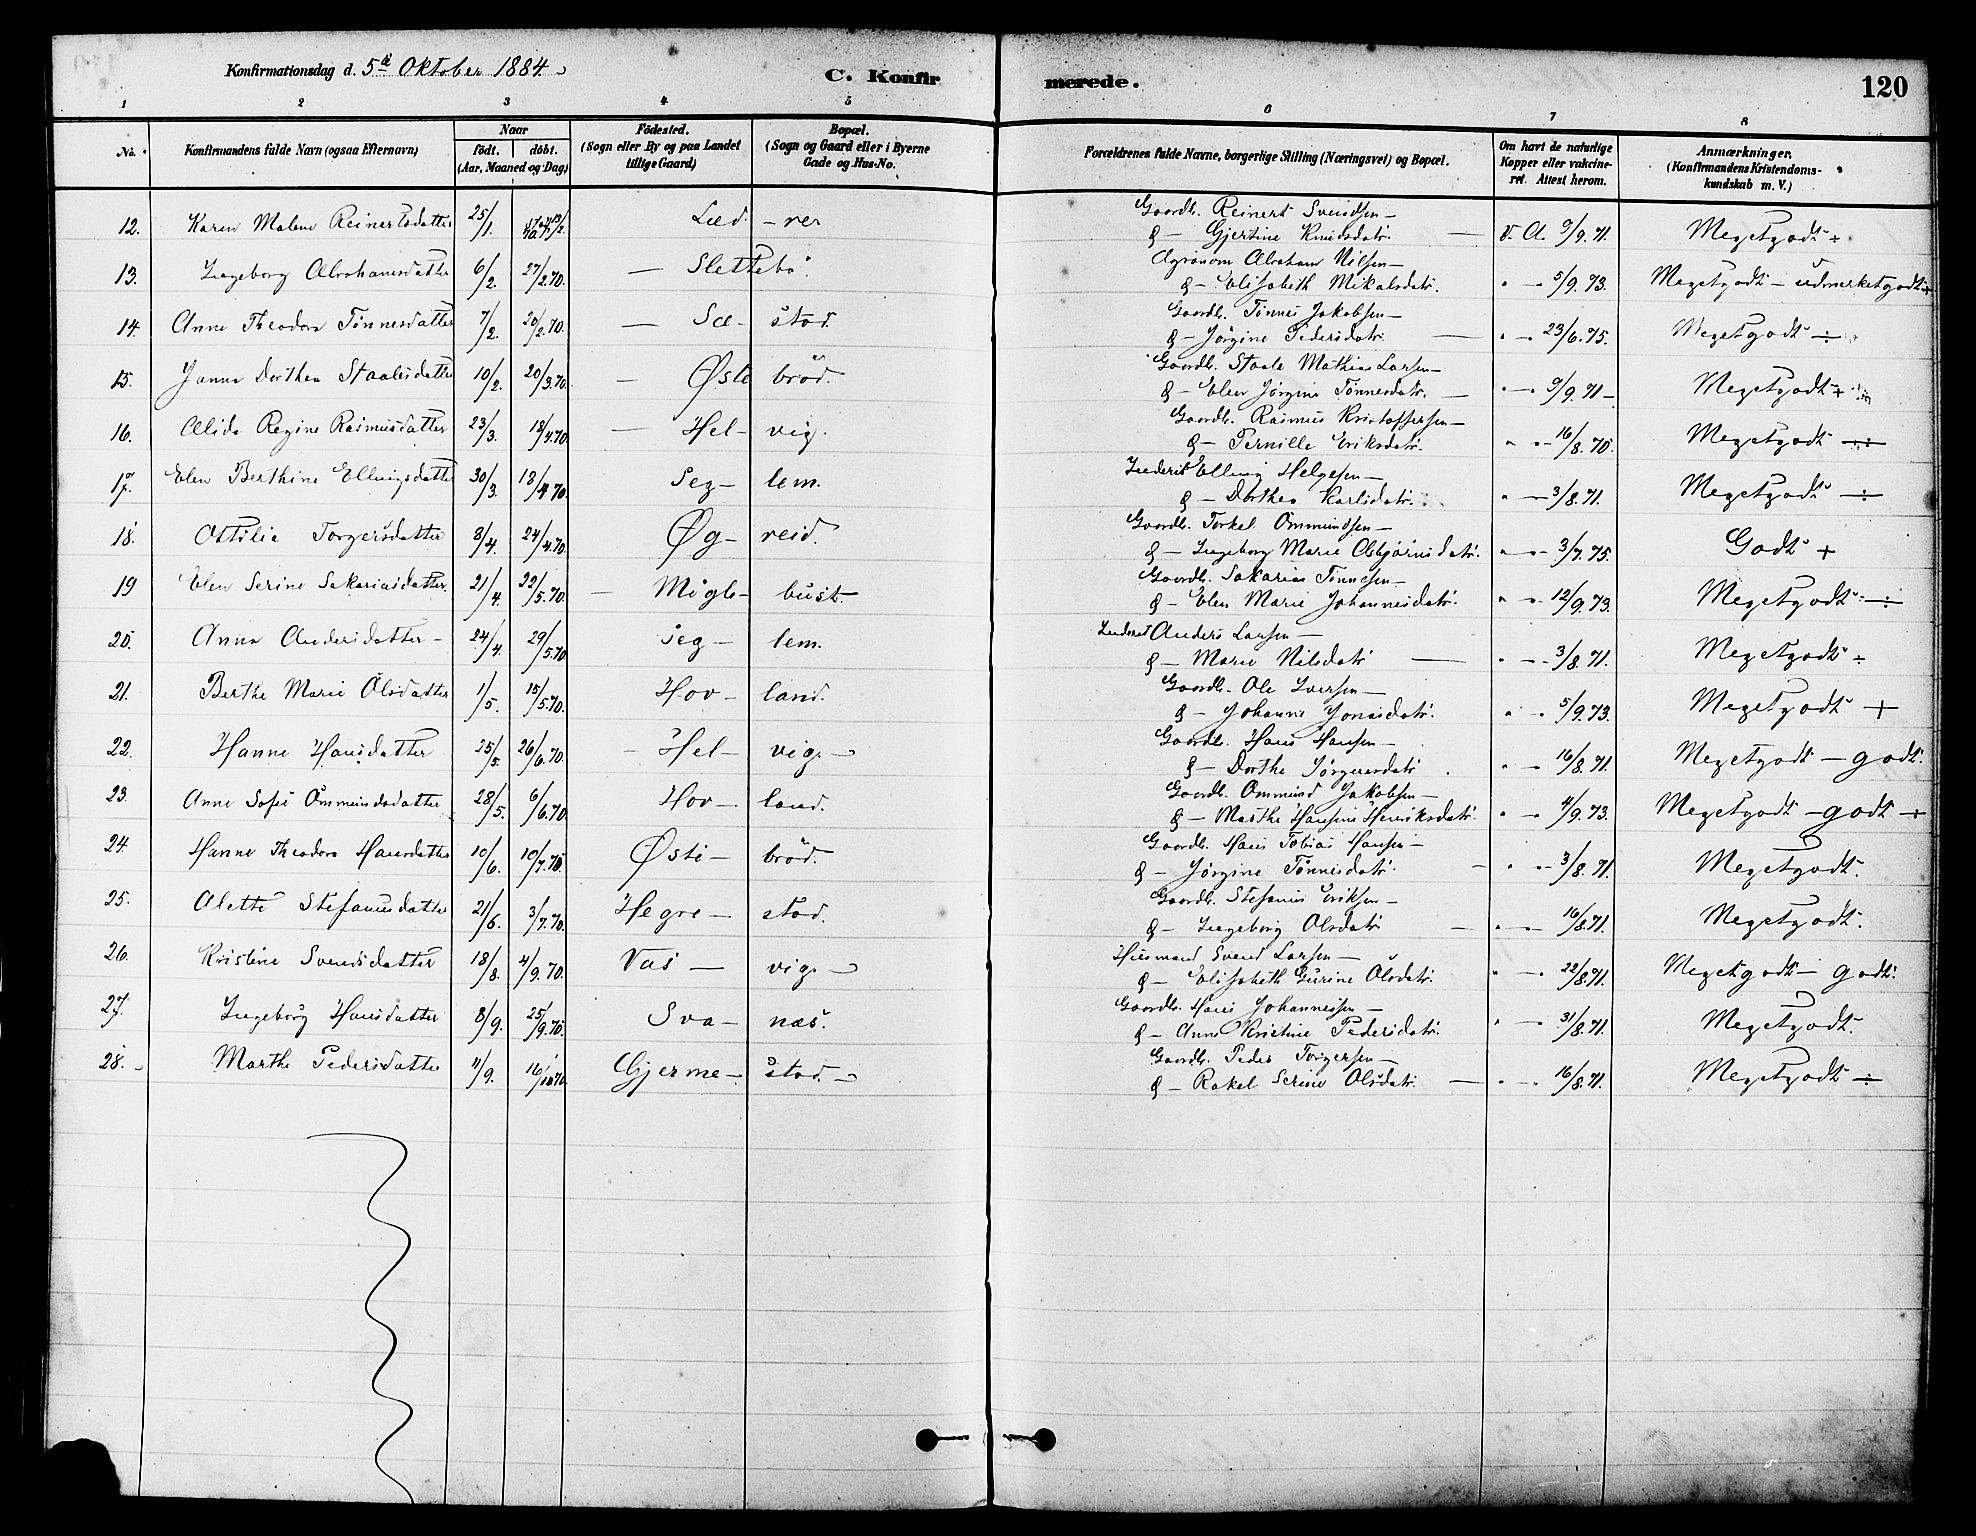 Konfirmationsdag d. 5te Oktober 1884.
C. Konfirmerede.
120
1 2 3 4 5 6 7 8
No.
Konfirmandens fulde Navn (ogsaa Efternavn)
Naar
födt. döbt.
(Aar, Maaned og Dag)
Födested.
(Sogn eller By og paa Landet tillige Gaard)
Bopæl.
(Sogn og Gaard eller i Byerne Gade og Hus-No.
Forældrenes fulde Navne, borgerlige Stilling (Næringsvei) og Bopæl.
Om havt de naturlige Kopper eller vakcineret. Attest herom.
Anmærkninger.
(Konfirmandens Kristendomskundskab m. V.)
Gaardb. Reinert Svendsen –
12. Karen Malene Reinertsdatter 25/1. Læd – rer & – Gjertine Knudsdatr. — v. A. 9/9.71. Megetgodt +
Agronom Abraham Nilsen –
13. Ingeborg Abrahamsdatter 6/2. 27/2.70. — Slettebö. & – Elisabeth Mikalsdatr. " – 5/9.73. Megetgodt – udmerketgodt +
Gaardb. Tönnes Jakobsen –
14. Anne Theodora Tönnesdatter 7/2. 20/2.70. — Sæ – stad. & – Jörgine Pedersdatr. — " – 23/6.75. Megetgodt ÷
Gaardb. Staale Mathias Larsen –
15. Janna Dorthea Staalesdatter 10/2. 20/3.70. – Øste bröd. & – Elen Jörgine Tönnesdatr. — " – 9/9.71 – Megetgodt +
Gaardb. Rasmus Kristoffersen –
16. Alida Regine Rasmusdatter 23/3. 18/4.70. — Hel – vig. & – Pernille Eriksdatr. " – 16/8.70. Megetgodt ÷
Inderst Elling Helgesen –
17. Elen Berthine Ellingsdatter 30/3. 18/4.70. Seg – lem. & – Dorthea Karlsdatr. " – 3/8.71. Megetgodt ÷
Gaardb. Torkel Ommundsen –
18. Ottilia Torgersdatter 8/4. 24/4.70. Øg – reid. & – Ingeborg Marie Asbjörnsdatr. " – 3/7.75. Godt +
Gaardb. Sakarias Tönnesen –
19 Elen Serine Sakariasdatter. 21/4. 22/5.70. – Mögle – bust. & – Elen Marie Johannesdatr. " – 12/9.73. Megetgodt ÷
Inderst Anders Larsen –
20. Anna Andersdatter – 24/4. 29/5.70 Seg – lem. & – Marie Nilsdatr — " – 3/8.71. Megetgodt ÷
Gaardb. Ole Iversen –
21. Berthe Marie Olsdatter 1/5. 15/5.70. Hov – land. & – Johanne Jonasdatr. " – 5/9.73. Megetgodt +
Gaardb. Hans Hansen –
22. Hanne Hansdatter 25/5. 26/6.70. – Hel – vig. & – Dorthe Jörgensdatr. " – 16/8.71. Megetgodt – godt.
Gaardb. Ommund Jakobsen –
23. Anne Sofie Ommundsdatter 28/5. 6/6.70. Hov – land. & – Marthe Hansine Henriksdatr. " – 4/9.73. Megetgodt – godt +
Gaardb. Hans Tobias Hansen –
24. Hanne Theodora Hansdatter 10/6. 10/7.70 Øste – bröd. & – Jörgine Tönnesdatr. – " – 3/8.71. Megetgodt.
Gaardb. Stefanus Eriksen –
25. Alette Stefanusdatter 21/6. 3/7.70. Hegre – stad. & – Ingeborg Olsdatr – " – 16/8.71. Megetgodt.
Husmand Svend Larsen –
26. Kristine Svendsdatter 18/8. 4/9.70. Vas – vig. & – Elisabeth Gurine Olsdatr. " – 22/8.71. Megetgodt – godt.
Gaardb. Hans Johannessen –
27. Ingeborg Hansdatter 8/9. 25/9.70. Sva – næs. & – Anne Kristine Pedersdatr. " – 31/8.71. Megetgodt.
Gaardb. Peder Torgersen –
28. Marthe Pedersdatter 11/9. 16/10 70 Gjerme – stad. & – Rakel Serine Olsdatr. — " – 16/8.71. Megetgodt ÷